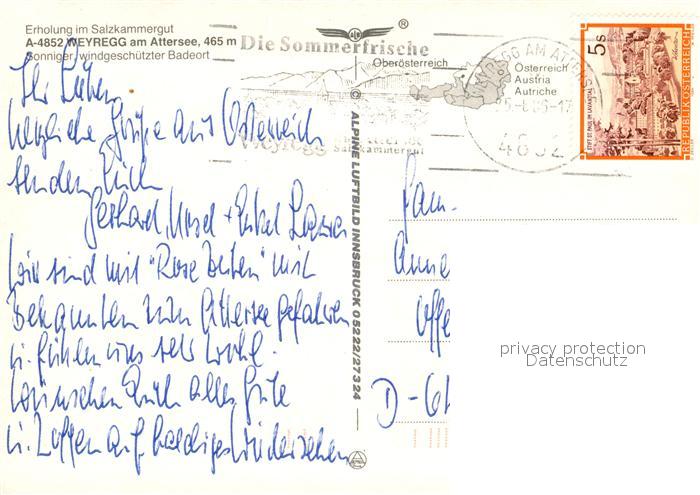 Erholung im Salzkammergut
A-4852 WEYREGG am Attersee, 465 m
Sonniger, windgeschützter Badeort
®
Die Sommerfrische
Oberösterreich
Weyregg am Attersee
Salzkammergut
WEYREGG AM ATTERSEE
Österreich
Austria
Autriche
4852
5s
STIFT ST. PAUL IM LAVANTTAL
REPUBLIK ÖSTERREICH
© ALPINE LUFTBILD INNSBRUCK 05222/27324
Ihr Lieben
herzliche Grüße aus Österreich
senden Euch
Gerhard, Ursel + Enkel
Wir sind mit "Rose" mit
Bekannten zum Attersee gefahren
u. fühlen uns sehr wohl.
Wünschen Euch alles Gute
u. hoffen auf baldiges Wiedersehen
Fam.
Anne
Offe
D-61
privacy protection
Datenschutz